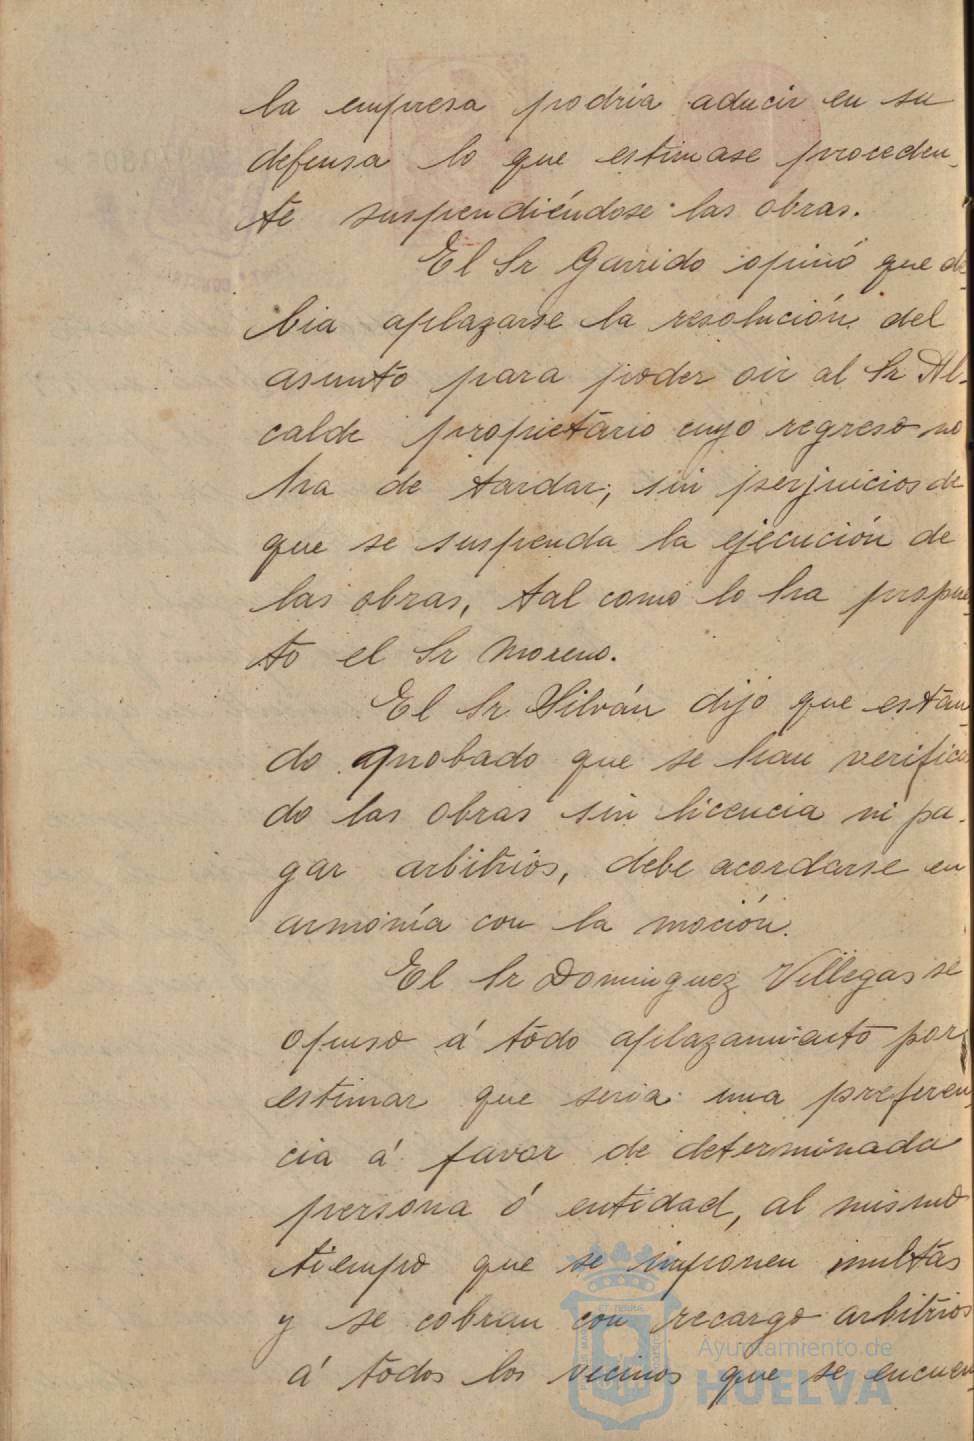 la empresa podria aducir en su
defensa lo que estimase proceden-
te suspendiéndose las obras.
El Sr Garrido opinó que de-
bia aplazarse la resolución del
asunto para poder oir al Sr Al-
calde propietario cuyo regreso no
ha de tardar, sin perjuicios de
que se suspenda la ejecución de
las obras, tal como lo ha propues-
to el Sr Moreno.
El Sr Silván dijo que están-
do aprobado que se han verifica-
do las obras sin licencia ni pa-
gar arbitrios, debe acordarse en
armonía con la moción.
El Sr Dominguez Villegas se
opuso á todo aplazamiento por
estimar que seria una preferen-
cia á favor de determinada
persona ó entidad, al mismo
tiempo que se imponen multas
y se cobran con recargo arbitrios
á todos los vecinos que se encuen-
Ayuntamiento de
HUELVA